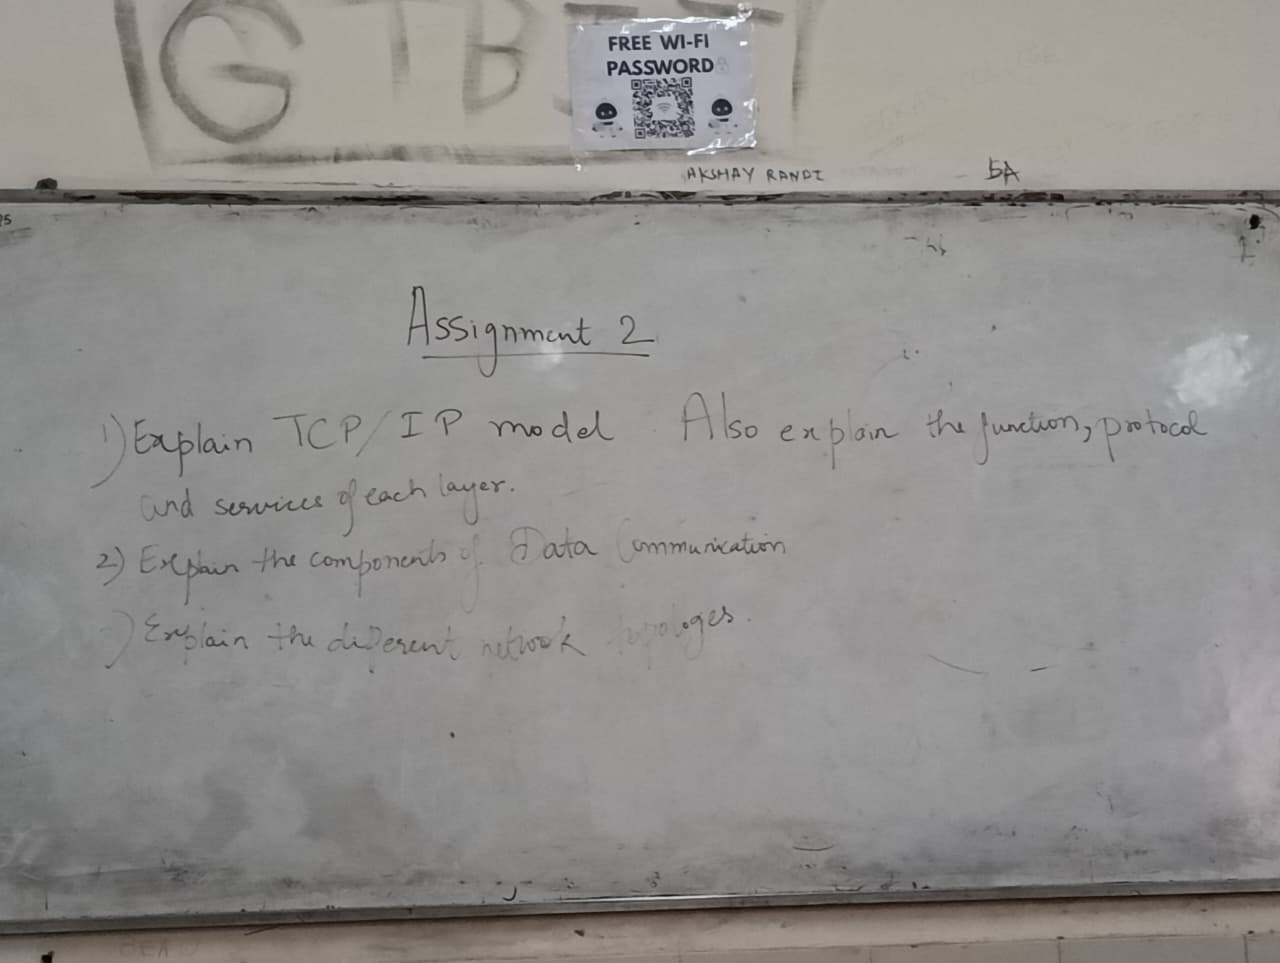 GTBIT
FREE WI-FI
PASSWORD
AKSHAY RANDI
5A
Assignment 2
1) Explain TCP/IP model. Also explain the function, protocol
and services of each layer.
2) Explain the components of Data Communication
) Explain the different network topologes.